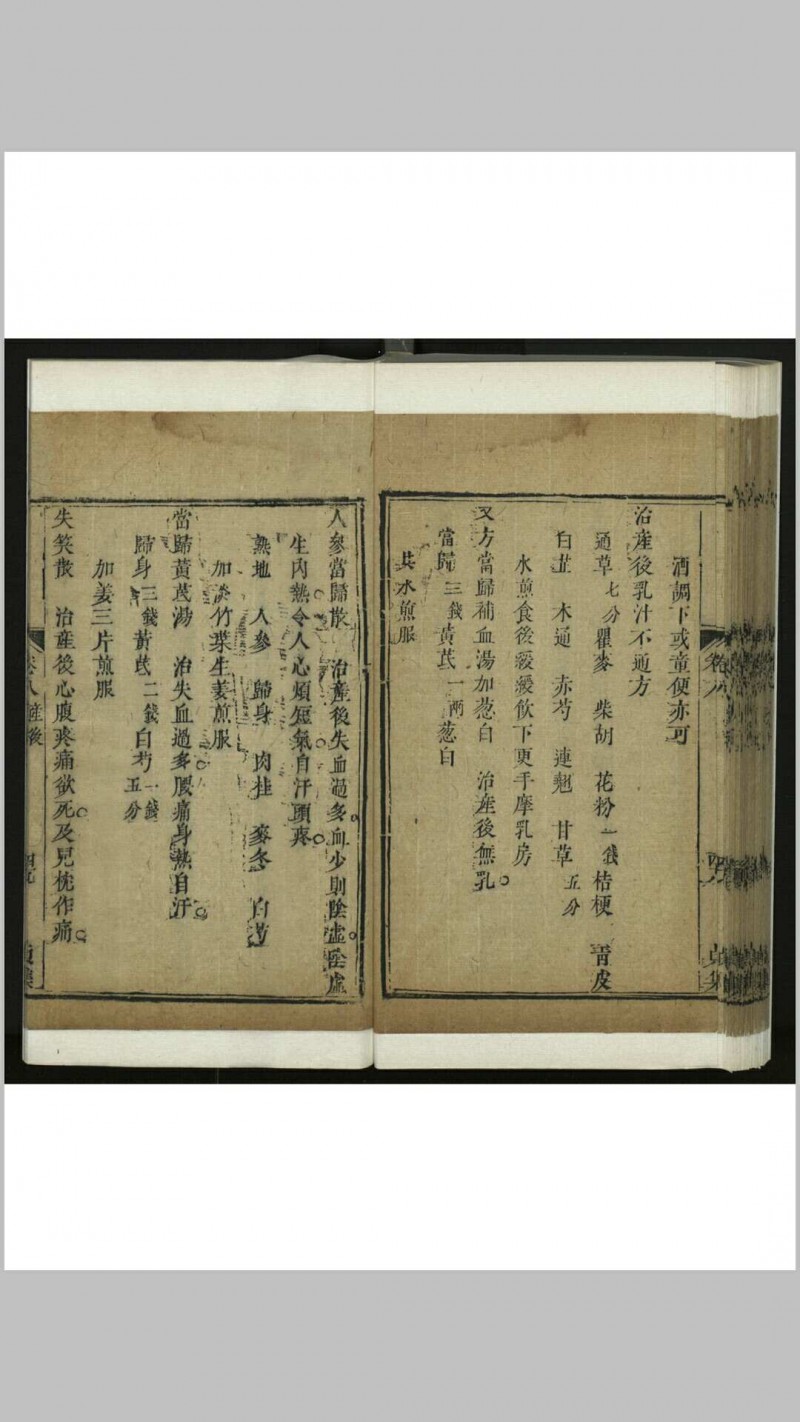 酒調下或童便亦可
治產後乳汁不通方
通草 七分 瞿麥 柴胡 花粉 一錢 桔梗 青皮
白芷 木通 赤芍 連翹 甘草 五分
水煎食後緩緩飲下更手摩乳房
又方當歸補血湯加葱白 治產後無乳
當歸 三錢 黃芪 一兩 葱白
共水煎服
人參當歸散 治產後失血過多血少則陰虛陰虛
生內熱令人心煩短氣自汗頭疼
熟地 人參 歸身 肉桂 麥冬 白芍
加淡竹葉生姜煎服
當歸黃芪湯 治失血過多腰痛身熱自汗
歸身 三錢 黃芪 二錢 白芍 一錢五分
加姜三片煎服
失笑散 治產後心腹疼痛欲死及兒枕作痛
卷八 產後